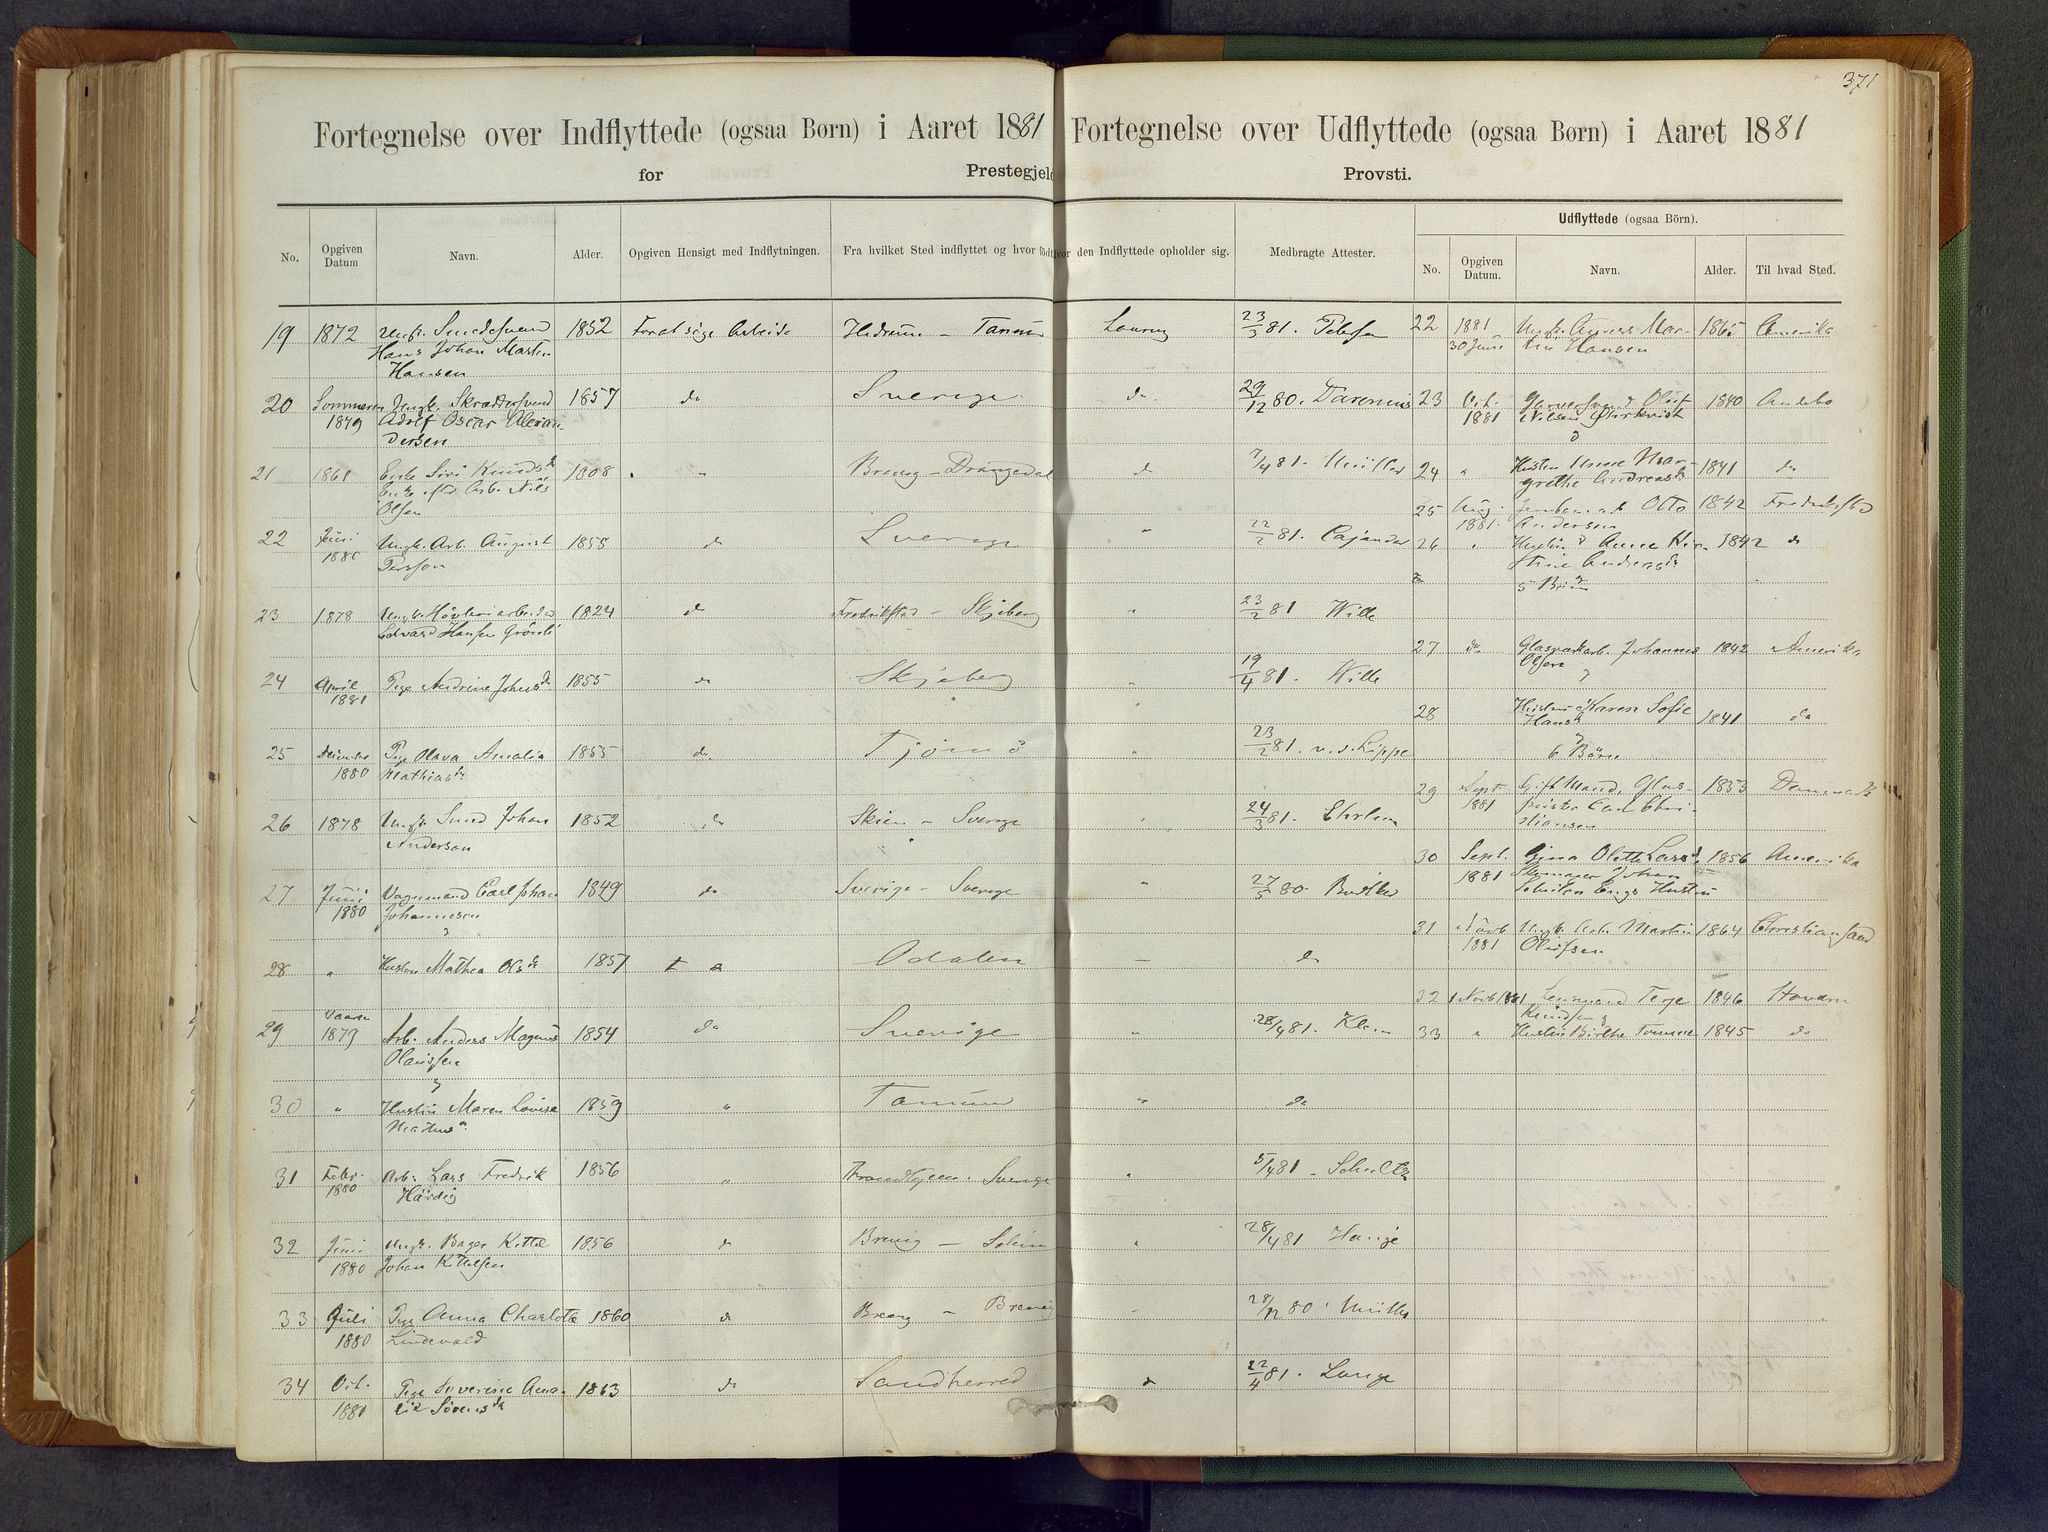 371
Fortegnelse over Indflyttede (ogsaa Børn) i Aaret 1881
for Prestegjeld
No. Opgiven Datum Navn. Alder. Opgiven Hensigt med Indflytningen. Fra hvilket Sted indflyttet og hvor født
19 1872 Ungk. Smedesvend 1852 Foratsøge Arbeide Hedrum - Tanum Laurvig 23/3 81. Petersen
Hans Johan Martin
Hansen
20 Sommeren Ungk. Skræddersvend 1857 do Sverige do 29/12 80.
1879 Adolf Oscar Alexan-
dersen
21 1861 Enke Siri Knudsd 1808 " Brevig - Drangedal do 7/4 81. Müller
Enke Arb. Nils
Olsen
22 Juni Ungk. Arb. August 1858 do Sverige " 22/2 81. Cajander
Persson
23 1878 Ungk. Høvleriarbeider 1824 do Fredrikstad - Skjeberg " 23/2 81 Wille
Edvard Hansen
24 April Pige Andrine Johnsd 1855 do Skjeberg " 19/4 81. Wille
1881
25 December Pige Olava Amalia 1855 do Tjømö " 23/2 81. v. d. Lippe
1880 Mathiasd
26 1878 Ungk. Smed Johan 1852 do Skien - Sverige " 24/3 81.
Anderson
27 Juni Carl Johan 1849 do Sverige - Sverige " 27/5 80.
1880 Johannesen
28 " Hustru Mathea Olsd 1857 Odalen - do
29 Vaaren Arb. Anders Magnus 1854 do Sverige " 28/4 81.
1879 Olaussen
30 " Hustru Maren Lovise 1859 " Tanum " do
31 Febr. Arb. Lars Fredrik 1856 " Trondhjem. Sverige " 5/4 81. Schultz
1880 Härdig
32 Juni Ungk. Bager Kittil 1856 do Brevig - " 28/4 81
1880 Johan Kittilsen
33 Juli Pige Anna Charlotte 1860 do Brevig - Brevig 28/12 80. Müller
1880 Lindevald
34 Oct. Pige Severine Ama- 1863 do Sandherred do 22/4 81. Lange
1880 lie Sørensd
Fortegnelse over Udflyttede (ogsaa Børn) i Aaret 1881
Provsti.
Udflyttede (ogsaa Börn).
hvor den Indflyttede opholder sig. Medbragte Attester. No. Opgiven Datum. Navn. Alder. Til hvad Sted.
22 1881 Ungk. Anders Mar- Amerika
30 Juni tin Hansen
23 Oct. Garversvend Olof 1840 Andebo
1881 Nilsen
24 " Hustru Anne Mar- 1841 do
grethe Andreasd
25 Aug. Otto 1842 Fredrikstad
1881. Andersen
26 " Hustru Anne Kir- 1842 do
stine Andersd
5 Börn
27 do Glasværkarb. Johannes 1842 Amerika
Olsen
28 Hustru Karen Sofie 1841 do
Hansd
6 Börn
29 Sept. Gift Mand, Glas- 1853 Danmark
1881 puster Carl Chri-
stiansen
30 Sept. Gina Olette Larsd. 1856 Amerika
1881 Skomager Johan
Hustru
31 Novb Ungk. Arb. Martin 1864 Christiansand
1881 Olufsen
32 1 Novb 1881 Terje 1846
Knudsen
33 " Hustru Birthe 1845 do